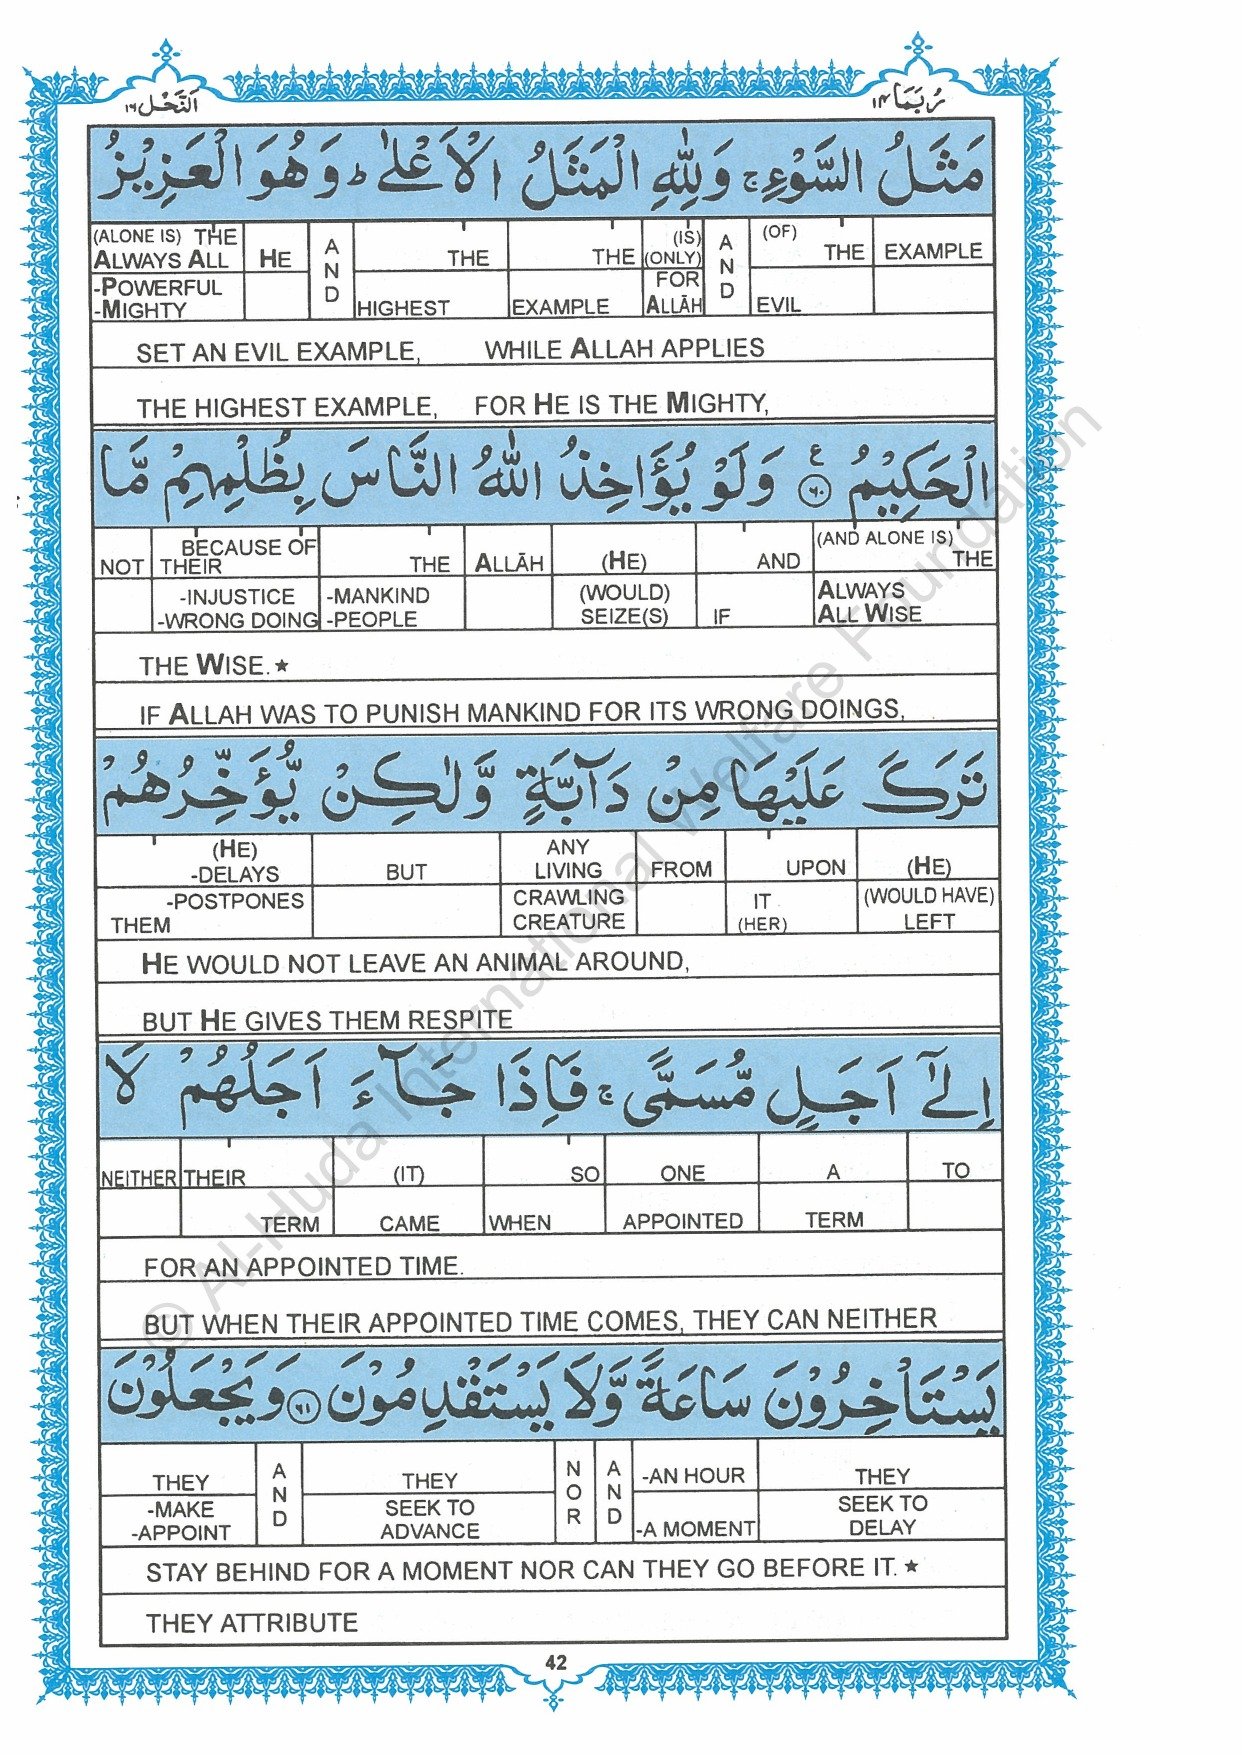 رُبَمَا ١٤
اَلنَّحْل ١٦
مَثَلُ السَّوْءِ ۚ وَلِلّٰهِ الْمَثَلُ الْاَعْلٰى ؕ وَهُوَ الْعَزِيْزُ
(ALONE IS) THE ALWAYS ALL HE AND THE THE (IS) (ONLY) AND (OF) THE EXAMPLE
-POWERFUL -MIGHTY HIGHEST EXAMPLE FOR ALLĀH EVIL
SET AN EVIL EXAMPLE, WHILE ALLAH APPLIES
THE HIGHEST EXAMPLE, FOR HE IS THE MIGHTY,
الْحَكِيْمُ ۶۰ ع وَلَوْ يُؤَاخِذُ اللّٰهُ النَّاسَ بِظُلْمِهِمْ مَّا
NOT BECAUSE OF THEIR THE ALLĀH (HE) AND (AND ALONE IS) THE
-INJUSTICE -WRONG DOING -MANKIND -PEOPLE (WOULD) SEIZE(S) IF ALWAYS ALL WISE
THE WISE.★
IF ALLAH WAS TO PUNISH MANKIND FOR ITS WRONG DOINGS,
تَرَكَ عَلَيْهَا مِنْ دَآبَّةٍ وَّلٰكِنْ يُّؤَخِّرُهُمْ
(HE) -DELAYS BUT ANY LIVING FROM UPON (HE)
-POSTPONES THEM CRAWLING CREATURE IT (HER) (WOULD HAVE) LEFT
HE WOULD NOT LEAVE AN ANIMAL AROUND,
BUT HE GIVES THEM RESPITE
اِلٰٓى اَجَلٍ مُّسَمًّى ۚ فَاِذَا جَآءَ اَجَلُهُمْ لَا
NEITHER THEIR (IT) SO ONE A TO
TERM CAME WHEN APPOINTED TERM
FOR AN APPOINTED TIME.
BUT WHEN THEIR APPOINTED TIME COMES, THEY CAN NEITHER
يَسْتَاْخِرُوْنَ سَاعَةً وَّلَا يَسْتَقْدِمُوْنَ ۶۱ وَيَجْعَلُوْنَ
THEY AND THEY NOR AND -AN HOUR THEY
-MAKE -APPOINT SEEK TO ADVANCE -A MOMENT SEEK TO DELAY
STAY BEHIND FOR A MOMENT NOR CAN THEY GO BEFORE IT.★
THEY ATTRIBUTE
42
© Al-Huda International Welfare Foundation